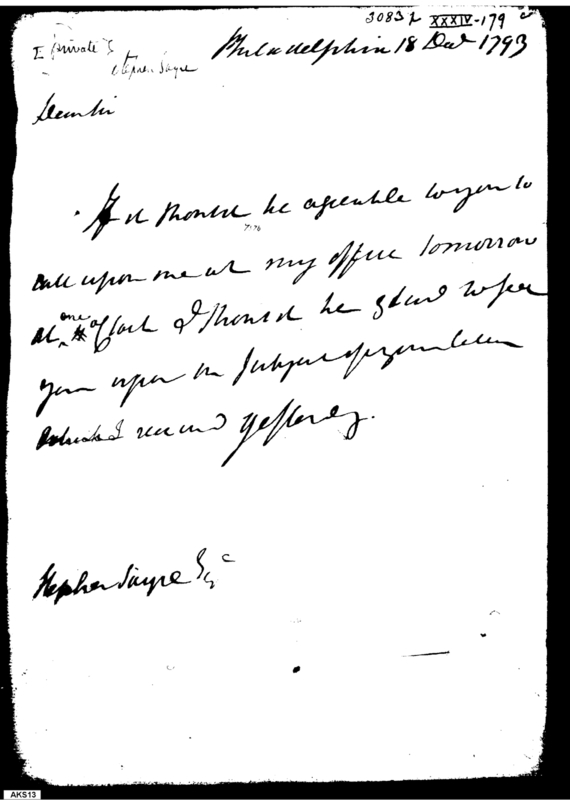 3083 L XXXIV-179
I private S
Stephen Sayre
Philadelphia 18 Decr 1793
Dear Sir
If it should be agreeable to you to
7176
call upon me at my office tomorrow
at one oClock I should be glad to see
you upon the subject of your letter
which I received yesterday.
Stephen Sayre Esqr
AKS13